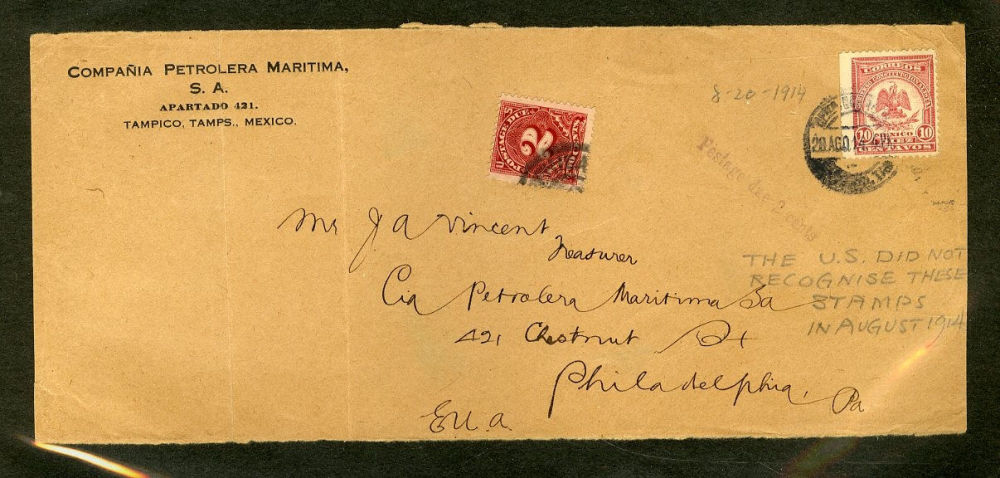 COMPAÑIA PETROLERA MARITIMA,
S. A.
APARTADO 421.
TAMPICO, TAMPS., MEXICO.
8-20-1914
POSTAGE DUE
2
CORREOS
MEXICO
10 10
CENTAVOS
20 AGO 14
Postage due 2 cents
Mr J A Vincent
Treasurer
Cia Petrolera Maritima Sa
421 Chestnut St
Philadelphia, Pa
E.U.A.
THE U.S. DID NOT
RECOGNISE THESE
STAMPS
IN AUGUST 1914